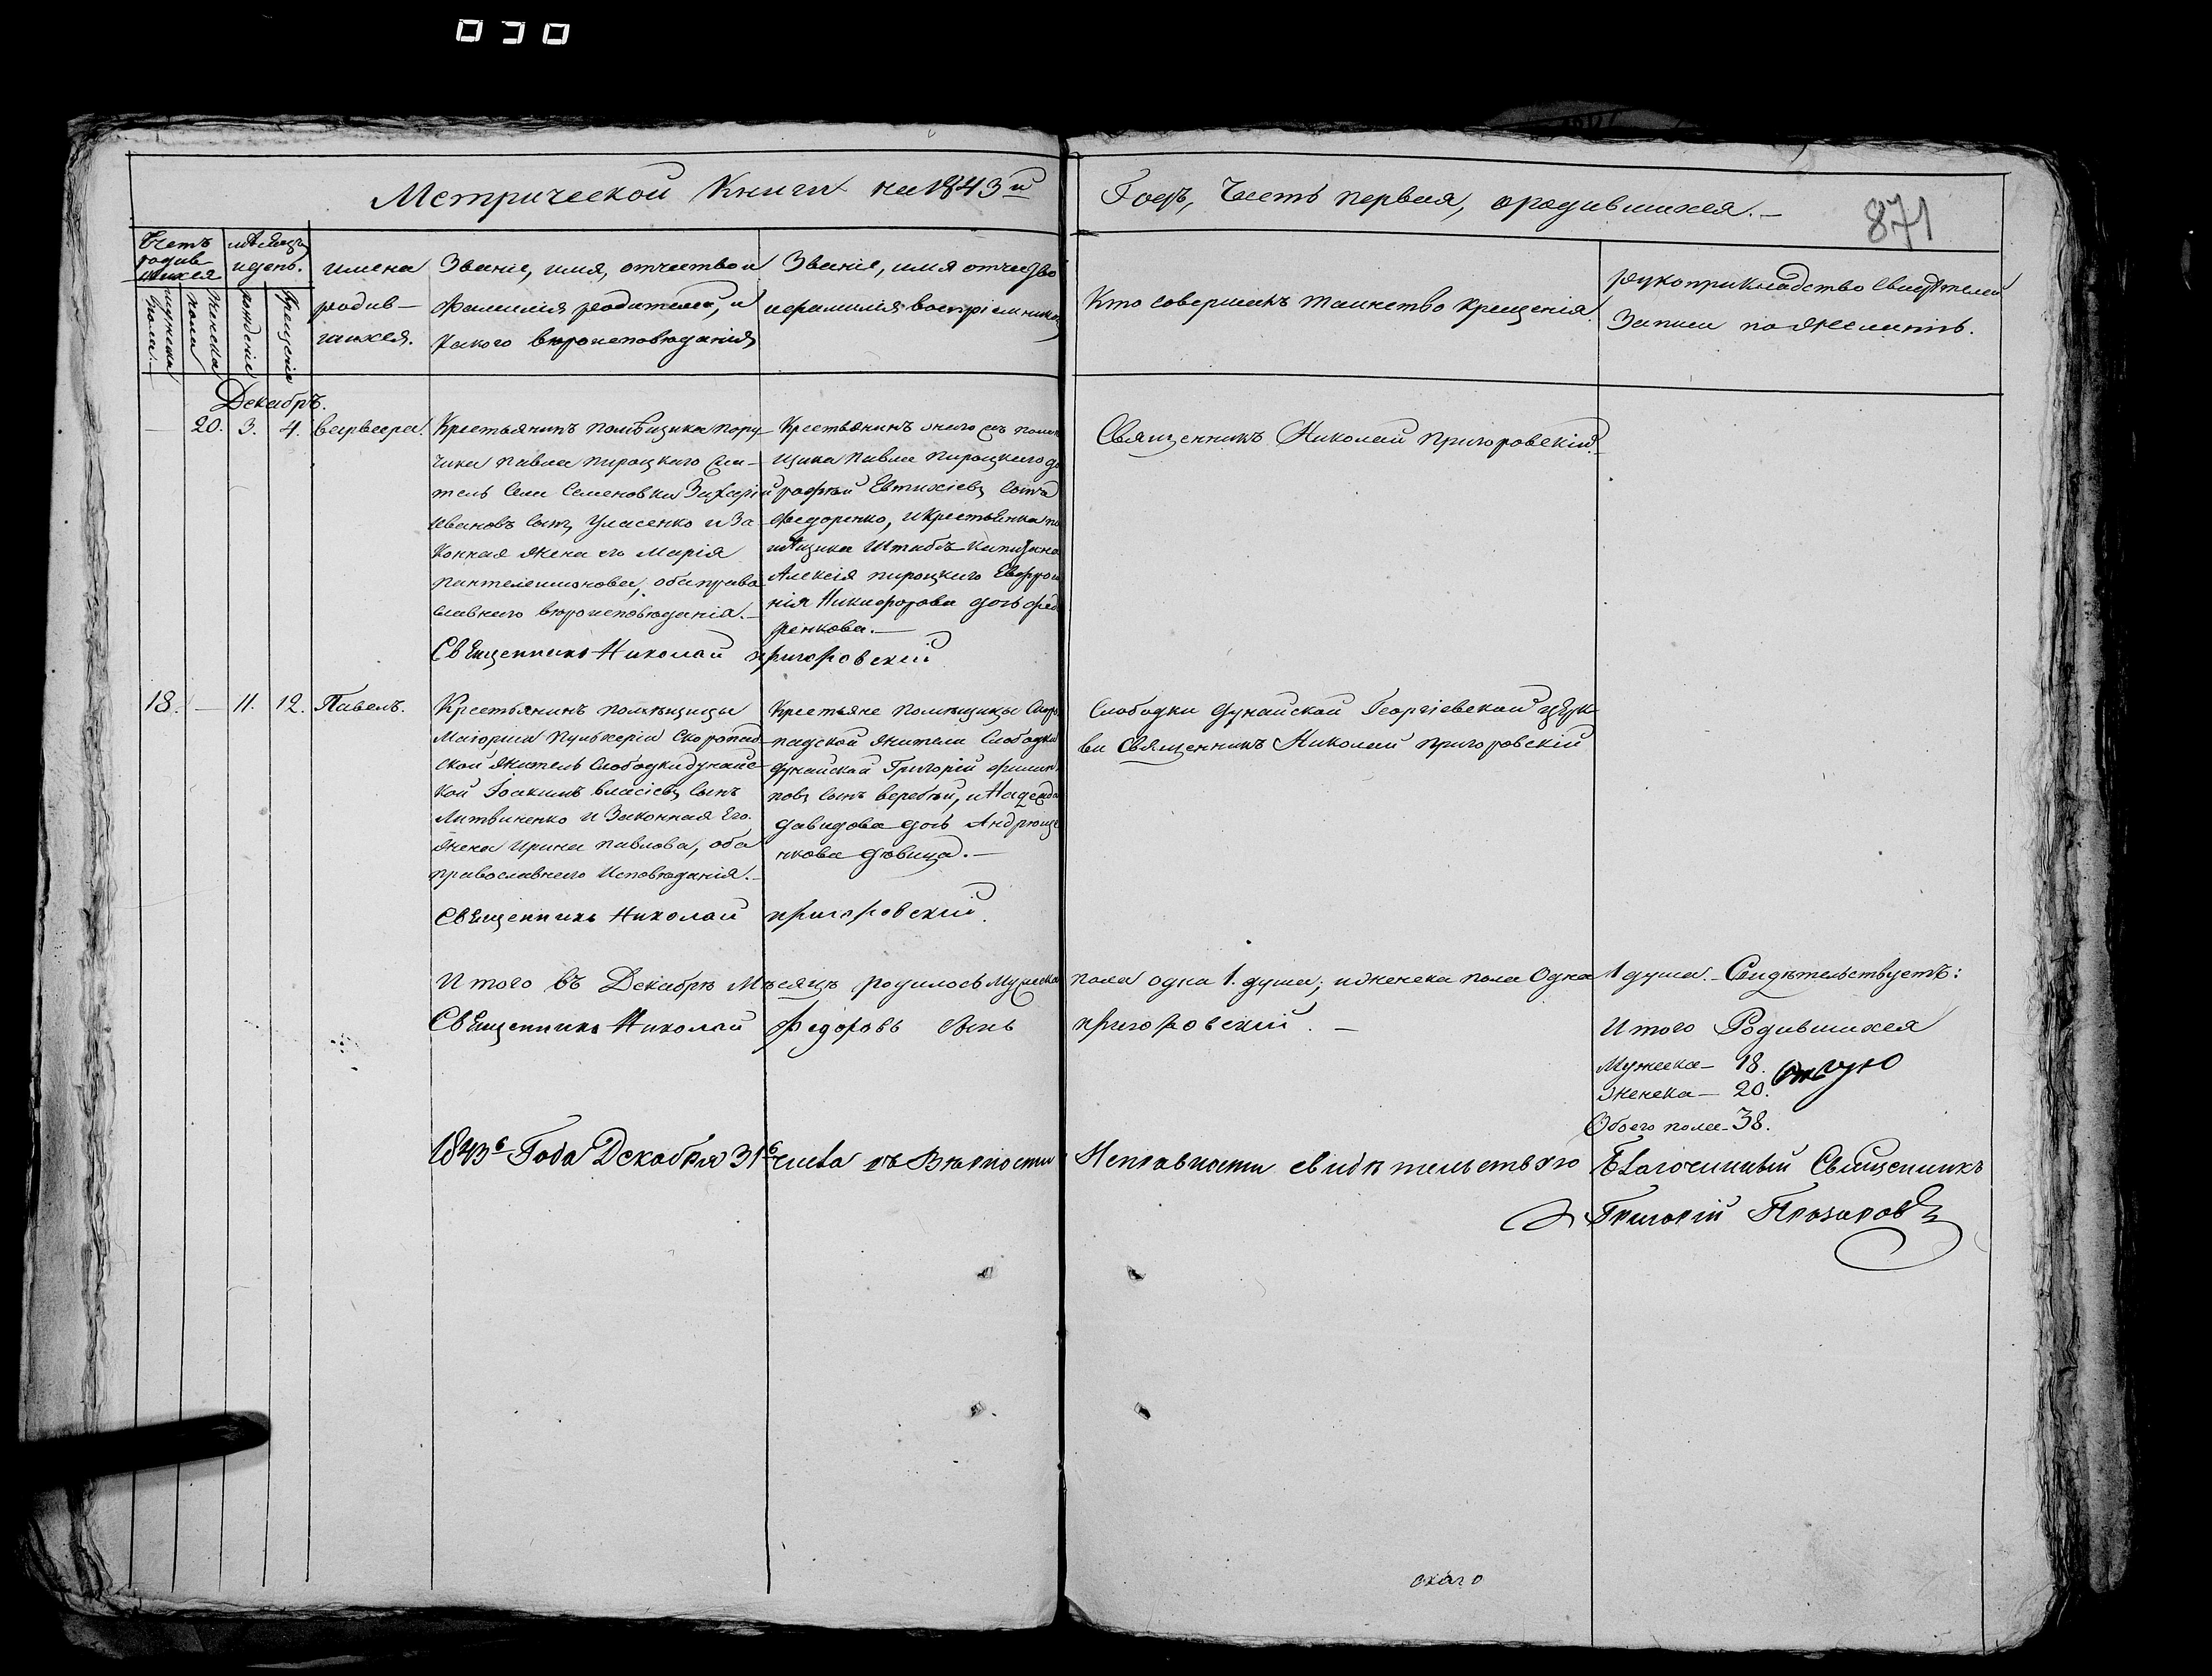 030
Метрической Книги на 1843й
Годъ, Часть первая, о родившихся.
871
Счетъ родив-шихся
мѣсяцъ и день.
имена родив-шихся.
Званіе, имя, отчество и
Фамилія родителей, и
какого вѣроисповѣданія
Званіе, имя отчество
и фамилія воспріемниковъ
Кто совершалъ таинство крещенія
Рукоприкладство свидѣтелей
записи по желанію.
мужска пола
женска пола
рожденія
крещенія
Декабрь.
20. 3. 4. варвара.
Крестьянинъ помѣщика пору-
чика павла пироцкаго жи-
тель села Семеновки Захарій
Ивановъ сынъ Уласенко и за
конная жена его Марія
пантелеимонова, оба право
славнаго вѣроисповѣданія.
Священникъ Николай пригоровскій
Крестьянинъ оного же помѣ
щика павла пироцкаго до
рофѣй Евтихіевъ сынъ
Федоренко, и крестьянка по
мѣщика Штабъ-Капитана
Алексія пироцкаго Евфроси
нія Никифорова дочь Федо
ренкова.
Священникъ Николай пригоровскій.
18. — 11. 12. Павелъ.
Крестьянинъ помѣщицы
Маіорши пульхеріи Скоропад-
ской житель Слободки дунайс-
кой Іоакимъ власіевъ сынъ
Литвиненко и законная его
жена Ирина павлова, оба
православнаго исповѣданія.
Священникъ Николай пригоровскій.
Крестьяне помѣщицы Скоро
падской жители Слободки
дунайской Григорій филип
повъ сынъ веребѣй, и Надежда
давидова дочь Андрюще
нкова дѣвица.
Слободки дунайской Георгіевской церк-
ви Священникъ Николай пригоровскій
Итого въ Декабрѣ Мѣсяцѣ родилось мужска пола одна 1. душа; и женска пола Одна 1 душа. Свидѣтельствуетъ:
Священникъ Николай Федоровъ сынъ пригоровскій.
Итого Родившихся
Мужска — 18.
женска — 20.
Обоего пола — 38.
1843го Года Декабря 31го числа въ Вѣрности Исправности свидѣтельствую Благочинный Священникъ
Григорій